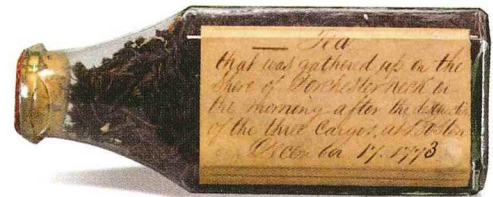 Tea
that was gathered up on the
Shore of Dorchester neck on
the morning after the destruction
of the three Cargos, at Boston
December 17, 1773